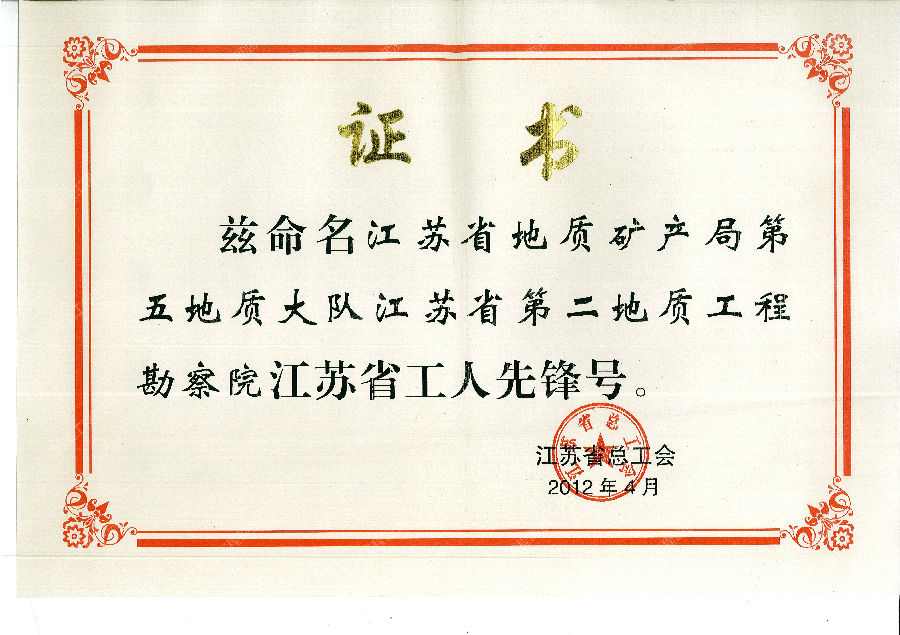 证书
兹命名江苏省地质矿产局第
五地质大队江苏省第二地质工程
勘察院江苏省工人先锋号。
江苏省总工会
江苏省总工会
2012年4月